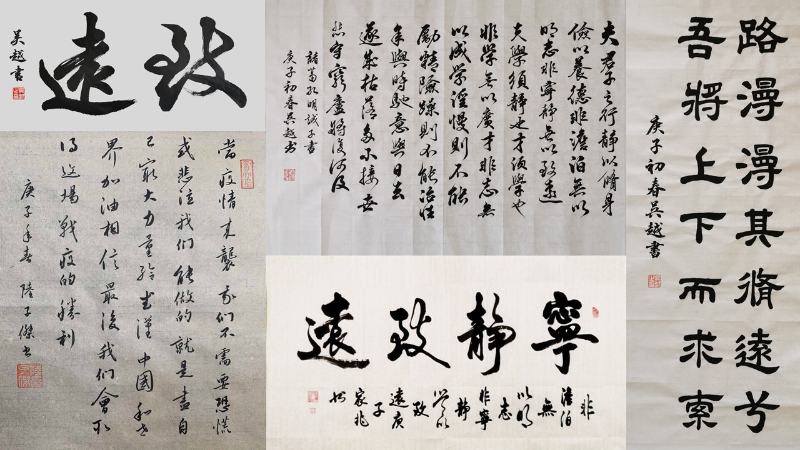 致遠
吴越書
當疫情来襲我们不需要恐慌
或悲泣我们能做的就是盡自
己最大力量给武漢中國和世
界加油相信最後我们會取
得这場戰疫的勝利
庚子年春 陸子傑书
夫君子之行静以脩身
儉以養德非澹泊無以
明志非寧静無以致遠
夫學須静也才須學也
非學無以廣才非志無
以成学淫慢則不能
勵精險躁則不能冶性
年與時馳意與日去
遂成枯落多不接世
悲守窮廬將復何及
諸葛孔明誡子書
庚子初春吴越书
寧静致遠
非
澹泊
無
以明
志
非寧
静
無以
致
遠庚
子
家兆
书
路漫漫其脩遠兮
吾將上下而求索
庚子初春吴越書